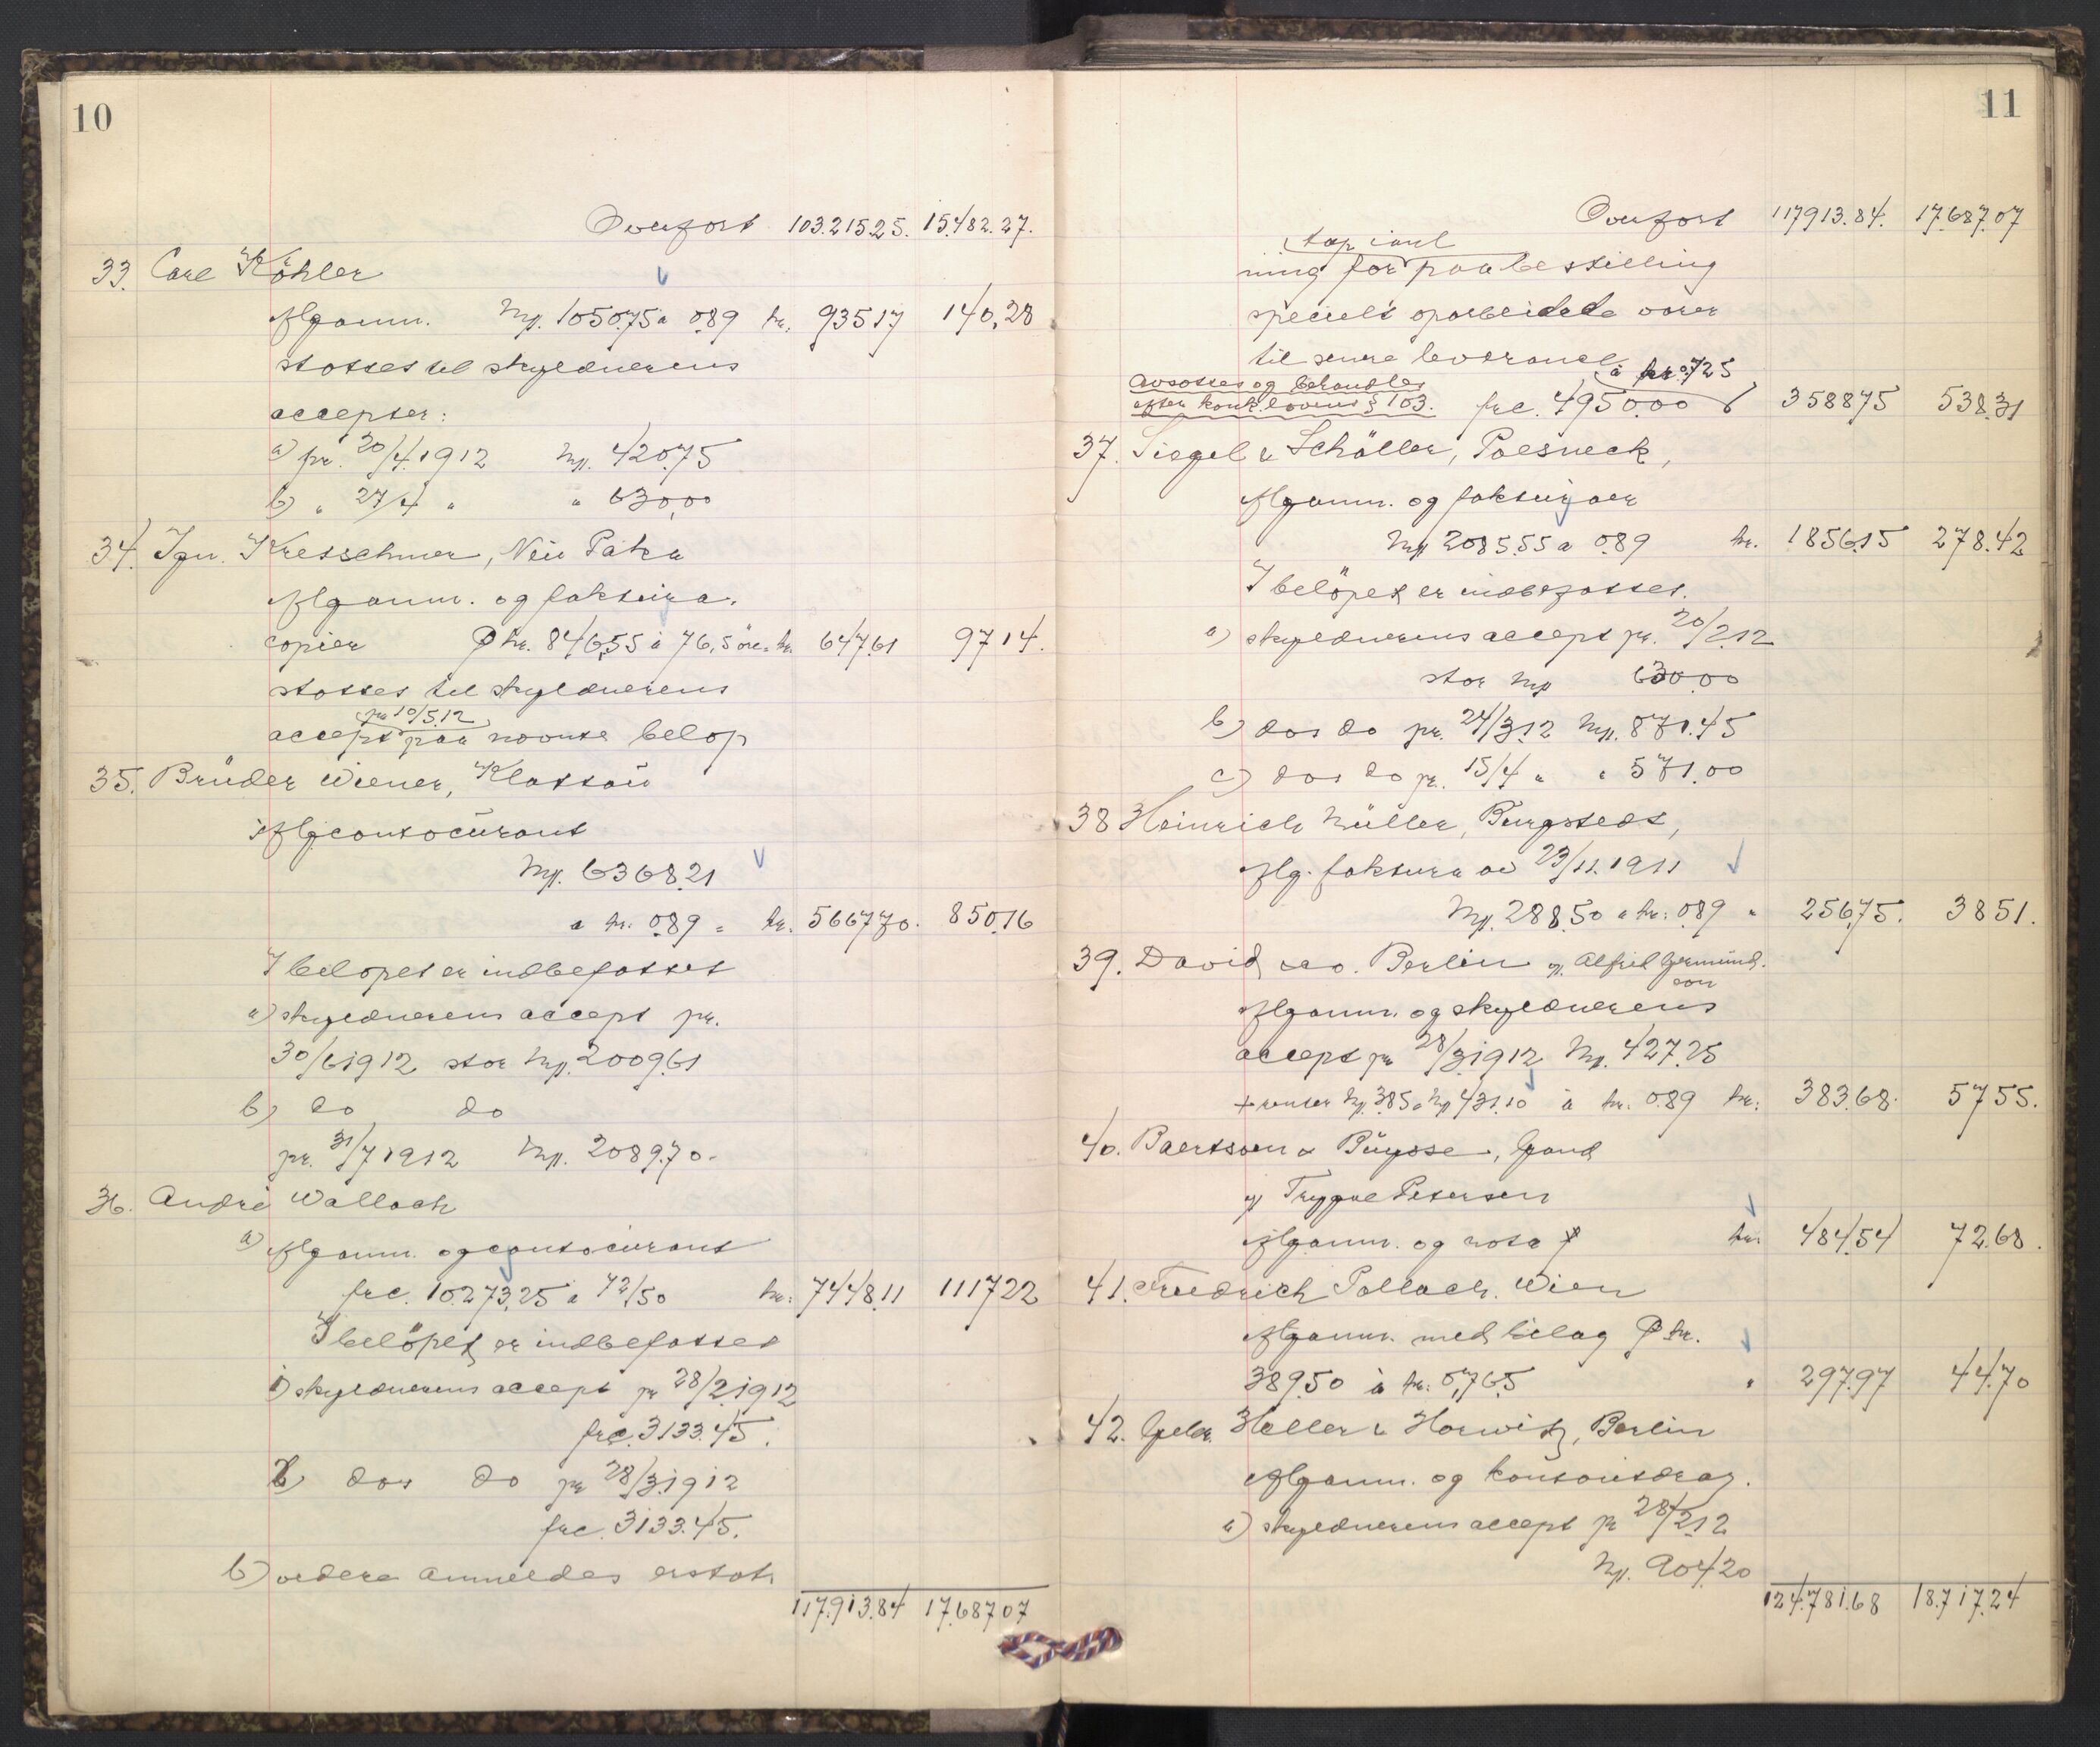 10
Overført 103.215.25. 15.482.27.
33. Carl Köhler
Ifølge anm. Mk. 1050.75 a 0.89 kr. 935.17 140,28
støttes til skyldnerens
accepter:
a) pr. 20/4.1912 Mk. 420.75
b) " 27/4 " " 630,00
34. Ign. Kretschmer, Neu Paka
Ifølge anm. og faktura,
copier Ø kr. 846,55 à 76,5 øre = kr. 647.61 97 14.
støttes til skyldnerens
pr 10/5.12
accept paa nævnte beløp
35. Brüder Wiener, Klattau
Iflg contocurant
Mk. 6368.21
a kr. 0.89 = kr. 5667.70. 850.16
I beløpet er indbefattet
a) skyldnerens accept pr.
30/6 1912 stor Mk. 2009.61
b) do do
pr. 31/7 1912 Mk. 2089.70.
36. André Wallach
a) Iflg anm. og contocurant
frc. 10.273,25 à 72/50 kr: 7448.11 1117 22
I beløpet er indbefattet
1) skyldnerens accept pr 28/2.1912
frc. 3133.45.
2) dos do pr 28/3.1912
frc. 3133.45.
b) videre anmeldes erstat
117.913.84 17.687 07
11
Overført 117913.84. 17.687.07
ning for paa bestilling
specielt oparbeidede varer
til senere leverance
à kr 0.725
Avsættes og behandles
efter konk.lovens § 103. frc. 4950.00 3588 75 538.31
37. Siegel & Schöller, Poesneck,
Iflg anm. og fakturaer
Mk 2085.55 a 0.89 kr. 1856.15 278.42
I beløpet er indbefattet.
a) skyldnerens accept pr. 20/2.12
stor Mk 630.00
b) dos do pr. 24/3.12 Mk. 871.45
c) dos do pr. 15/4 " " 571.00
38 Heinrich Müller, Burgstedt,
Iflg. faktura av 23/11.1911
Mk. 288.50 a kr: 0.89 " 256,75. 38 51.
39. David Berlin v. Alfred
Iflg anm. og skyldnerens
accept pr 28/3.1912 Mk. 427.25
+ renter Mk. 3.85 = Mk 431.10 à kr. 0.89 kr: 383.68. 57 55.
40. Baertsoen & Buysse, Gand
v/ Trygve Petersen
Iflg anm. og nota kr: 484.54 72.68.
41. Friedrich Pollack. Wien
Iflg anm. med bilag Ø kr.
389.50 à kr: 0,765 " 297.97 44.70
42. Gebr. Heller & Horwitz, Berlin
Iflg anm. og kontoutdrag.
a) skyldnerens accept pr 28/2.12
Mk. 904.20
124.781.68 18.717.24